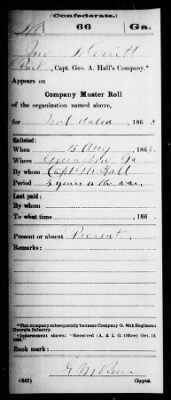 (Confederate.)
66 Ga.
Capt. Geo. A. Hall's Company.*
Appears on
Company Muster Roll
of the organization named above,
for Not dated, 186
Enlisted:
When 15 Aug, 186
Where Greensboro Ga
By whom Capt Hall
Period 3 years or the war
Last paid:
By whom
To what time, 186
Present or absent Present.
Remarks:
*This company subsequently became Company G, 66th Regiment
Georgia Infantry.
Book mark:
(642) Copyist.